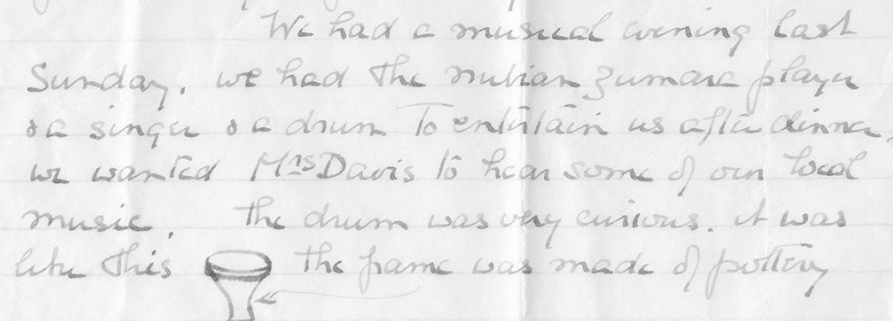 We had a musical evening last
Sunday. we had the nubian zumara player
& a singer & a drum to entertain us after dinner.
we wanted Mrs Davis to hear some of our local
music. The drum was very curious. it was
like this the frame was made of pottery